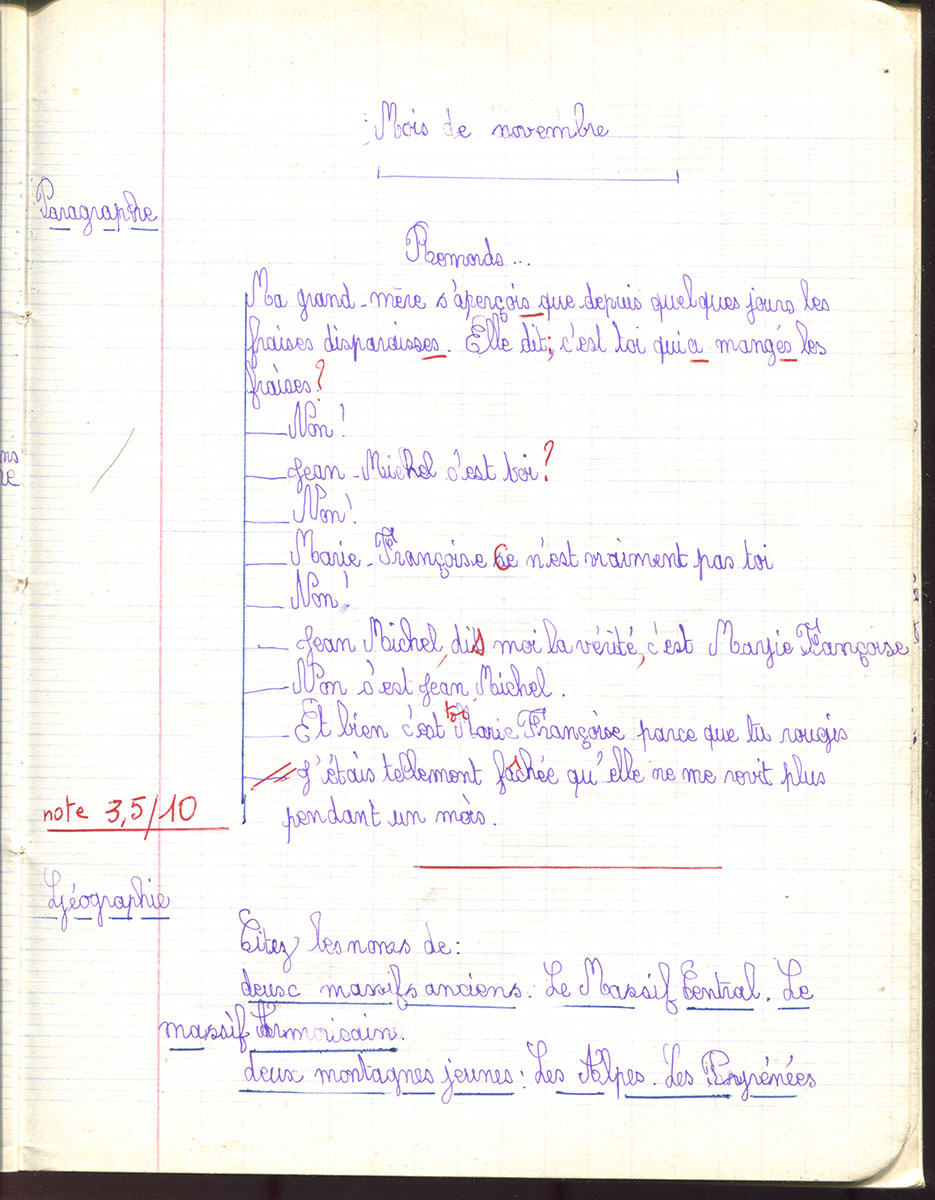 Mois de novembre
Paragraphe
Remords...
Ma grand-mère s'aperçois que depuis quelques jours les
fraises disparaisses. Elle dit; c'est toi qui a mangés les
fraises?
Non!
Jean-Michel c'est toi?
Non!
Marie-Françoise Ce n'est vraiment pas toi
Non!
Jean Michel, dis moi la vérité, c'est Marie Françoise
Non c'est Jean Michel.
Et bien c'est toi Marie Françoise parce que tu rougis
J'étais tellement fâchée qu'elle ne me rovit plus
pendant un mois.
note 3,5/10
Géographie
Citez les noms de:
deux massifs anciens. Le Massif Central. Le
massif Armoricain.
deux montagnes jeunes: Les Alpes. Les Pyrénées